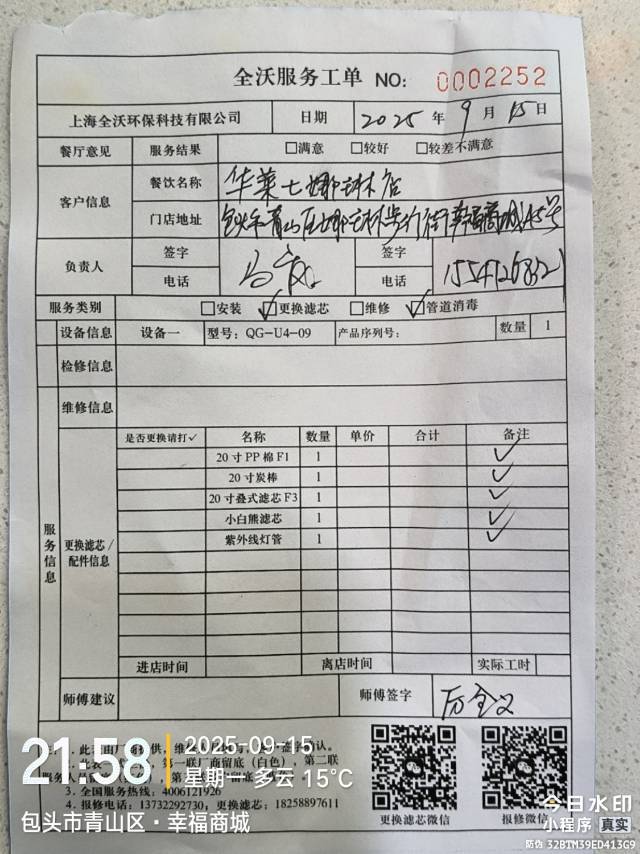 全沃服务工单 NO: 0002252
上海全沃环保科技有限公司 日期 2025 年 9 月 15 日
餐厅意见 服务结果 □满意 □较好 □较差不满意
客户信息 餐饮名称 华莱士娜琳店
门店地址 包头市青山区娜琳步行街幸福商城A5号
负责人 签字 签字
电话 电话
服务类别 □安装 ☑更换滤芯 □维修 ☑管道消毒
设备信息 设备一 型号: QG-U4-09 产品序列号: 数量 1
检修信息
维修信息
服务信息
更换滤芯/配件信息
是否更换请打✓ 名称 数量 单价 合计 备注
20寸PP棉F1 1 ✓
20寸炭棒 1 ✓
20寸叠式滤芯F3 1 ✓
小白熊滤芯 1 ✓
紫外线灯管 1 ✓
进店时间 离店时间 实际工时
师傅建议 师傅签字
3. 全国服务热线: 4006121926
4. 报修电话: 13732292730; 更换滤芯: 18258897611
更换滤芯微信 报修微信
21:58 2025-09-15
星期一 多云 15°C
包头市青山区·幸福商城
今日水印
小程序 真实
防伪 32BTM39ED413G9